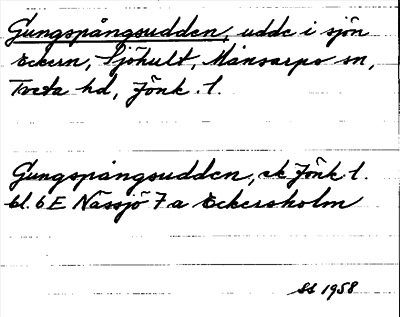 Gungspångsudden, udde i sjön
Eckern, Sjöhult, Månsarps sn,
Tveta hd, Jönk. l.
Gungspångsudden, ek Jönk l.
bl. 6E Nässjö 7a Eckersholm
SS 1958